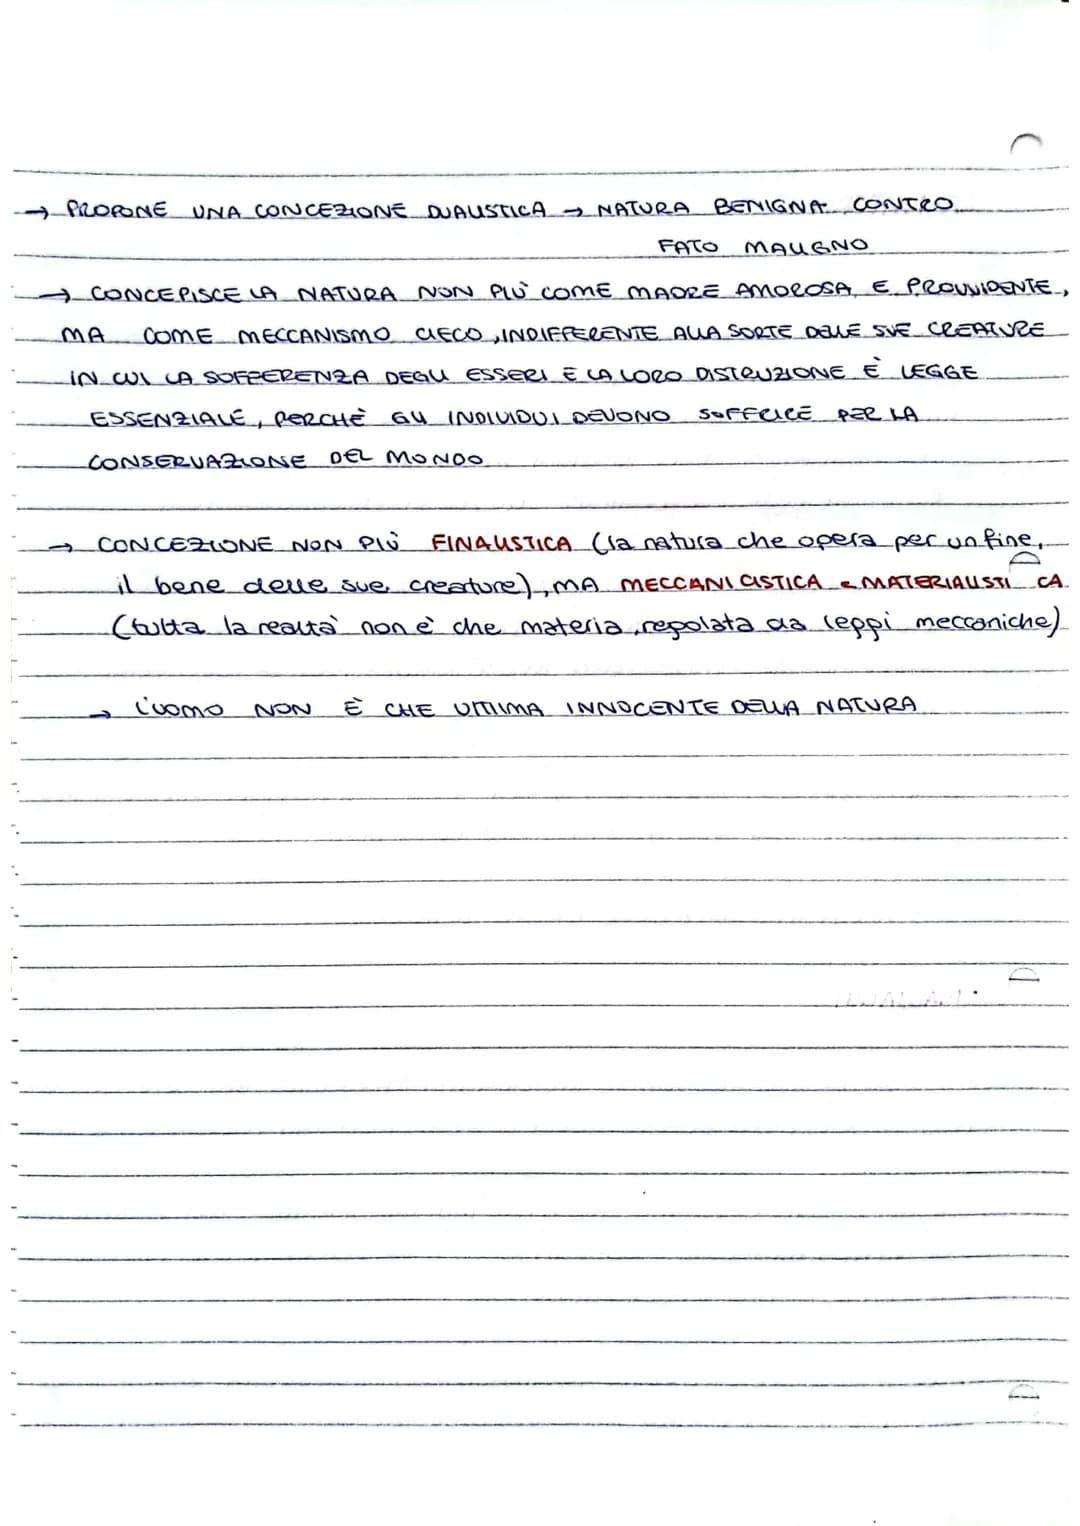 → PROPONE UNA CONCEZIONE DUALISTICA → NATURA BENIGNA CONTRO
FATO MALIGNO
→ CONCEPISCE LA NATURA NON PIÙ COME MADRE AMOROSA E PROVVIDENTE,
MA COME MECCANISMO CIECO, INDIFFERENTE ALLA SORTE DELLE SUE CREATURE
IN CUI LA SOFFERENZA DEGLI ESSERI E LA LORO DISTRUZIONE È LEGGE
ESSENZIALE, PERCHÈ GLI INDIVIDUI DEVONO SOFFRIRE PER LA
CONSERVAZIONE DEL MONDO
→ CONCEZIONE NON PIÙ FINALISTICA (la natura che opera per un fine,
il bene delle sue creature), MA MECCANICISTICA e MATERIALISTICA
(tutta la realtà non è che materia, regolata da leggi meccaniche)
→ L'UOMO NON È CHE VITTIMA INNOCENTE DELLA NATURA